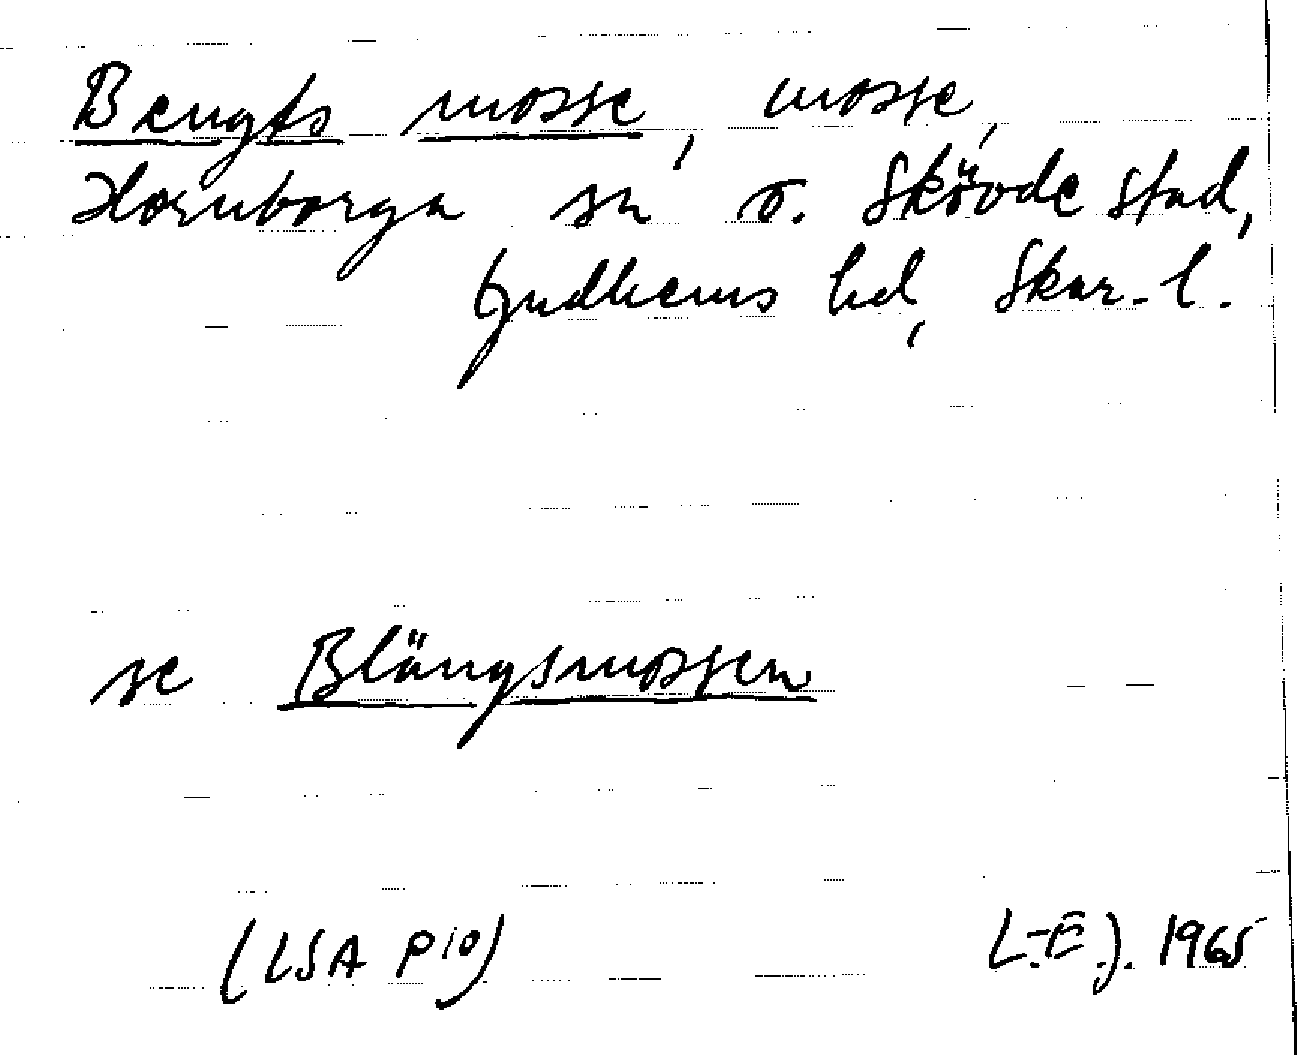 Bengts mosse, mosse,
Hornborga sn o. Skövde stad,
Gudhems hd, Skar. l.
se Blängsmossen
(LSA P10) L.-E. J. 1965